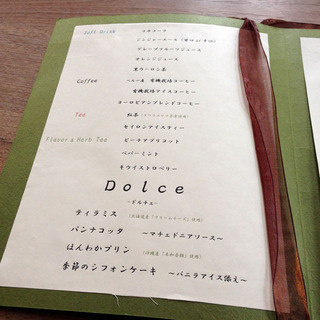 Soft Drink コカコーラ
ジンジャーエール
グレープフルーツジュース
オレンジジュース
黒ウーロン茶
Coffee 有機栽培コーヒー
有機栽培アイスコーヒー
ヨーロピアンブレンドコーヒー
Tea 紅茶
セイロンアイスティー
Flavor & Herb Tea ピーチアプリコット
ペパーミント
キウイストロベリー
Dolce
-ドルチェ-
ティラミス 使用)
パンナコッタ ～マチェドニアソース～
ほんわかプリン 使用)
季節のシフォンケーキ ～バニラアイス添え～